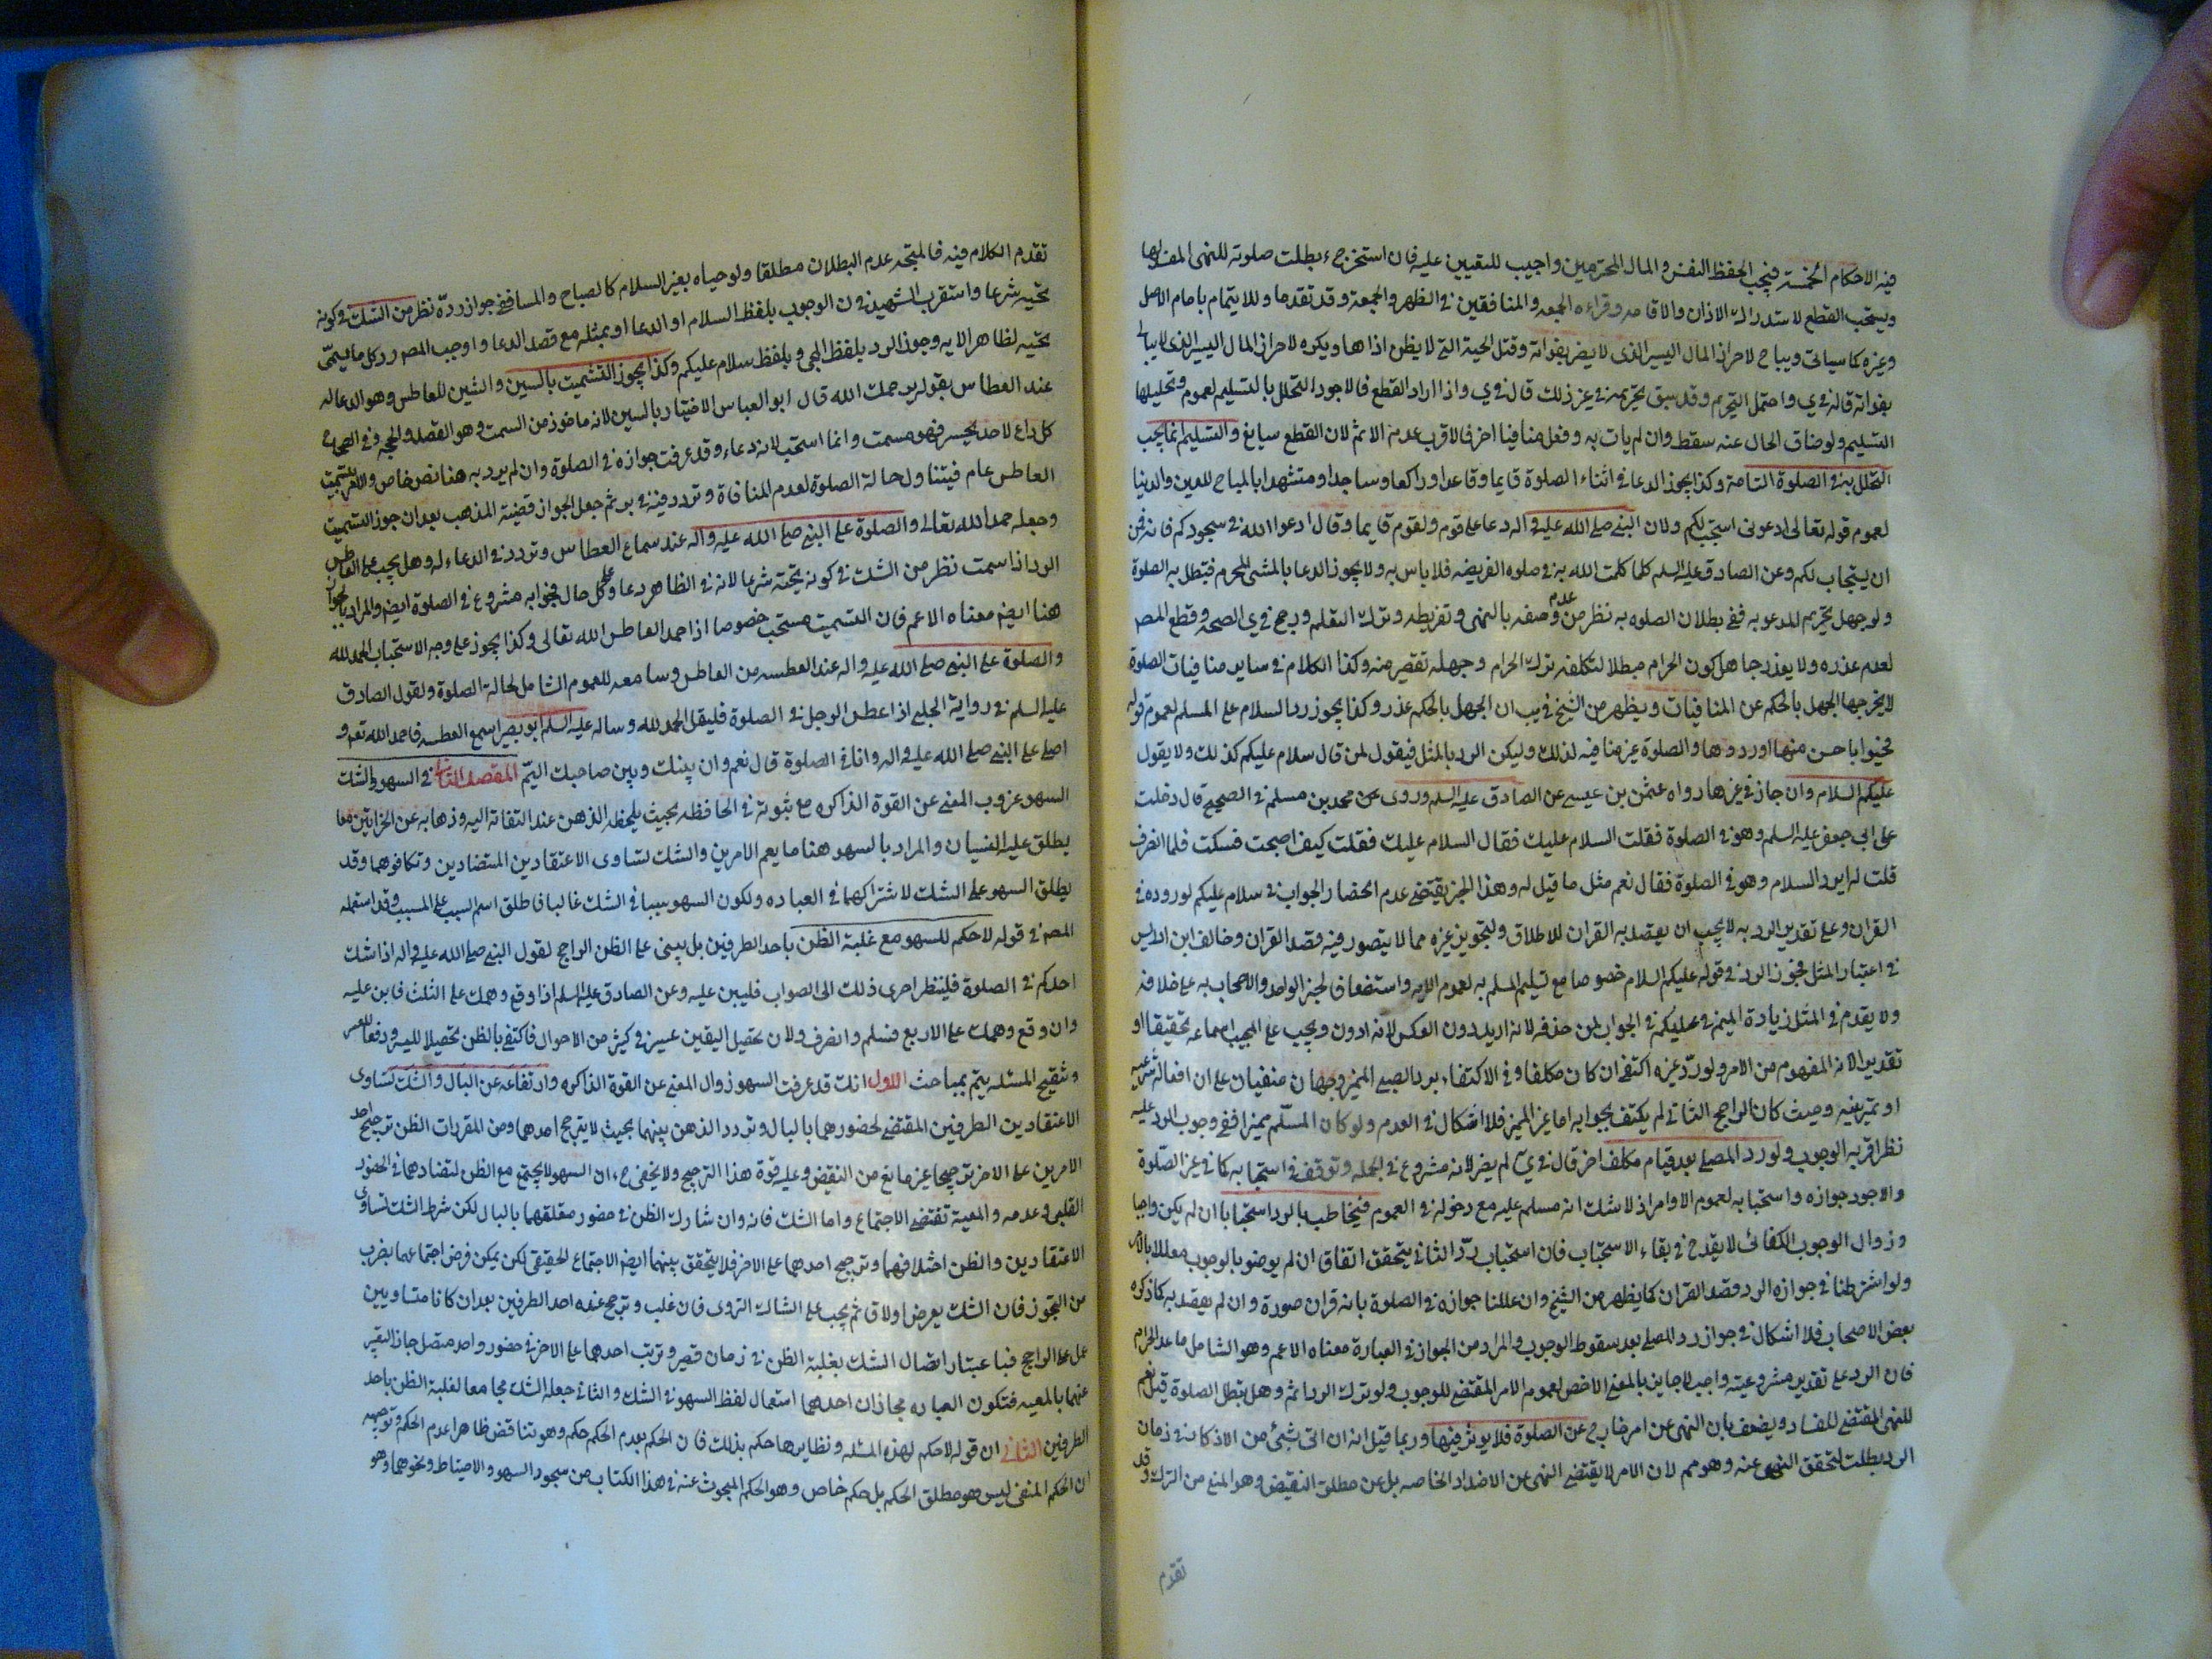 فيه الاحكام الخمسة فيجب لحفظ النفس والمال المحترمين واجيب للتعيين عليه فان استخرج ح بطلت صلوته للنهى المفسد لها
ويستحب القطع لاستدراك الاذان والاقامه وقراءه الجمعه والمنافقين في الظهر والجمعة وقد تقدما وللايتمام بامام الاصل
وغيره كما سياتى ويباح لاحراز المال اليسير الذى لا يضر بفواته وقتل الحية التى لا يظن اذاها ويكره لاحراز المال اليسير الذى لا يبالى
بفواته قاله في ي واحتمل التحريم وقد سبق تحريمه في غير ذلك قال في ي واذا اراد القطع فالاجود التحلل بالتسليم لعموم وتحليلها
التسليم ولو ضاق الحال عنه سقط وان لم يات به وفعل منافيا اخر فالاقرب عدم الاثم لان القطع سايغ والتسليم انما يجب
التحلل به في الصلوة التامة وكذا يجوز الدعا في اثناء الصلوة قايما وقاعدا وراكعا وساجدا ومتشهدا بالمباح للدين والدنيا
لعموم قوله تعالى ادعونى استجب لكم ولان النبي صلى الله عليه واله دعا على قوم ولقوم قايما وقال ادعوا الله في سجودكم فانه قمن
ان يستجاب لكم وعن الصادق عليه السلم كلما كلمت الله به في صلوه الفريضه فلا باس به ولا يجوز الدعا بالمشى المحرم فتبطل به الصلوة
ولو جهل تحريم المدعو به ففي بطلان الصلوه به نظر من عدم وصفه بالنهى وتفريطه وترك التعلم ورجح في ي الصحه وقطع المصر
لعدم عذره ولا يعذر جاهل كون الحرام مبطلا لتكلفه ترك الحرام وجهله تقصير منه وكذا الكلام في ساير منافيات الصلوة
لا يخرجها الجهل بالحكم عن المنافيات ويظهر من الشيخ في يب ان الجهل بالحكم عذر وكذا يجوز رد السلام على المسلم لعموم قوله
فحيوا باحسن منها او ردوها والصلوة غير منافيه لذلك وليكن الرد بالمثل فيقول لمن قال سلام عليكم كذلك ولا يقول
عليكم السلام وان جاز في غيرها رواه عثمن بن عيسى عن الصادق عليه السلم وروى عن محمد بن مسلم في الصحيح قال دخلت
على ابي جعفر عليه السلم وهو في الصلوة فقلت السلام عليك فقال السلام عليك فقلت كيف اصبحت فسكت فلما انصرف
قلت له ايرد السلام وهو في الصلوة فقال نعم مثل ما قيل له وهذا الخبر يقتضي عدم انحصار الجواب في سلام عليكم لوروده في
القران وعلى تقدير الرد به لا يجب ان يقصد به القران للاطلاق ولتجويز غيره مما لا يتصور فيه قصد القران وخالف ابن ادريس
في اعتبار المثل فجوز الرد في قوله عليكم السلام خصوصا مع تسليم المسلم به لعموم الايه واستضعافا لخبر الواحد والاصحاب به على خلافه
ولا يقدح في المثل زيادة الميم في عليكم في الجواب لمن حذفه لانه ازيد دون العكس لانه ادون ويجب على المجيب اسماعه تحقيقا او
تقديرا لانه المفهوم من الامر ولو ردّ غيره اكتفى ان كان مكلفا وفي الاكتفاء برد الصبى المميز وجهان مبنيان على ان افعاله شرعيه
او تمرينيه وحيث كان الراجح الثاني لم يكتف بجوابه اما غير المميز فلا اشكال في العدم ولو كان المسلّم مميزا ففي وجوب الرد عليه
نظر اقربه الوجوب ولو رد المصلى بعد قيام مكلف اخر قال في ي لم يضر لانه مشروع في الجمله وتوقف في استحبابه كما في غير الصلوة
والاجود جوازه واستحبابه لعموم الاوامر اذ لا شك انه مسلم عليه مع دخوله في العموم فيخاطب بالرد استحبابا ان لم يكن واجبا
وزوال الوجوب الكفائى لا يقدح في بقاء الاستحباب فان استحباب ردّ الثانى يتحقق اتفاقا ان لم يوصفو بالوجوب معللا بالامر
ولو اشترطنا في جوازه الرد قصد القران كما يظهر من الشيخ وان عللنا جوازه في الصلوة بانه قران صورة وان لم يقصد به كما ذكره
بعض الاصحاب فلا اشكال في جواز رد المصلى بعد سقوط الوجوب والمراد من الجواز في العبارة معناه الاعم وهو الشامل ما عدا الحرام
فان الرد على تقدير مشروعيته واجب لا جايز بالمعنى الاخص لعموم الامر المقتضى للوجوب ولو ترك الرد اثم وهل تبطل الصلوة قيل نعم
للنهى المقتضى للفساد ويضعف بان النهى عن امر خارج عن الصلوة فلا يوثر فيها وربما قيل انه ان اتى بشئ من الاذكار في زمان
الرد بطلت لتحقق النهى عنه وهو مم لان الامر لا يقتضى النهى عن الاضداد الخاصه بل عن مطلق النقيض وهو المنع من الترك وقد
تقدم
تقدم الكلام فيه فالمتجه عدم البطلان مطلقا ولو حياه بغير السلام كالصباح والمسا ففي جواز ردّه نظر من الشك في كونه
تحيه شرعا واستقرب الشهيد في ن الوجوب بلفظ السلام او الدعا او بمثله مع قصد الدعا واوجب المصر رد كل ما يسمّى
تحيه لظاهر الايه وجوز الرد بلفظ المحيى وبلفظ سلام عليكم وكذا يجوز التشميت بالسين والشين للعاطس وهو الدعا له
عند العطاس بقوله يرحمك الله قال ابو العباس الاختيار بالسين لانه ماخوذ من السمت وهو القصد والمحجة وفي الصحاح
كل داع لاحد بخير فهو مسمت وانما استحب لانه دعاء وقد عرفت جوازه في الصلوة وان لم يرد به هنا نص خاص والامر بتسميت
العاطس عام فيتناول حالة الصلوة لعدم المنافاة وتردد فيه في بر ثم جعل الجواز قضية المذهب بعد ان جوز التسميت
وجعله حمد الله تعالى والصلوة على النبي صلى الله عليه واله عند سماع العطاس وتردد في الدعاء له وهل يجب على العاطس
الرد اذا سمت نظر من الشك في كونه تحيّة شرعا لانه في الظاهر دعا وعلى كل حال فجوابه مشروع في الصلوة ايضا والمراد بالجواز
هنا ايضا معناه الاعم فان التسميت مستحب خصوصا اذا حمد العاطس الله تعالى وكذا يجوز على وجه الاستحباب الحمد لله
والصلوة على النبي صلى الله عليه واله عند العطسه من العاطس وسامعه للعموم الشامل لحالة الصلوة ولقول الصادق
عليه السلم في رواية الحلبي اذا عطس الرجل في الصلوة فليقل الحمد لله وساله عليه السلم ابو بصير اسمع العطسه فاحمد الله تعم و
اصلى على النبي صلى الله عليه واله وانا في الصلوة قال نعم وان بينك وبين صاحبك اليمّ المقصد الثاني في السهو والشك
السهو عزوب المعنى عن القوة الذاكره مع ثبوته في الحافظه بحيث يلحظه الذهن عند التفاته اليه وذهابه عن الخزانتين معا
يطلق عليه النسيان والمراد بالسهو هنا ما يعم الامرين والشك تساوى الاعتقادين المتضادين وتكافوهما وقد
يطلق السهو على الشك لاشتراكهما في العباده ولكون السهو سببا في الشك غالبا فاطلق اسم السبب على المسبب وقد استعمله
المصر في قوله لا حكم للسهو مع غلبة الظن باحد الطرفين بل يبنى على الظن الراجح لقول النبي صلى الله عليه واله اذا شك
احدكم في الصلوة فلينظر احرى ذلك الى الصواب فليبن عليه وعن الصادق عليه السلم اذا وقع وهمك على الثلث فابن عليه
وان وقع وهمك على الاربع فسلم وانصرف ولان تحصيل اليقين عسير في كثير من الاحوال فاكتفى بالظن تحصيلا لليسر ودفعا للعسر
وتنقيح المسئله يتم بمباحث الاول انك قد عرفت السهو زوال المعنى عن القوة الذاكره وارتفاعه عن البال والشك تساوى
الاعتقادين الطرفين المقتضى لحضورهما بالبال وتردد الذهن بينهما بحيث لا يترجح احدهما ومن المقررات الظن ترجيح احد
الامرين على الاخر ترجيحا غير مانع من النقيض وعليه قوة هذا الترجيح ولا يخفى ح ان السهو لا يجتمع مع الظن لتضادهما في الحضور
القلبى وعدمه والمعية تقتضى الاجتماع واما الشك فانه وان شارك الظن في حضور متعلقهما بالبال لكن شرط الشك تساوى
الاعتقادين والظن اختلافهما وترجيح احدهما على الاخر فلا يتحقق بينهما ايضا الاجتماع الحقيقى لكن يمكن فرض اجتماعهما بضرب
من التجوز فان الشك يعرض اولا ثم يجب على الشاك التروى فان غلب وترجح عنده احد الطرفين بعد ان كانا متساويين
عمل على الراجح فباعتبار اتصال الشك بغلبة الظن في زمان قصير وترتب احدهما على الاخر في حضور واحد متصل جاز التعبير
عنهما بالمعيه فتكون العباره مجازان احدهما استعمال لفظ السهو في الشك والثاني جعله الشك مجامعا لغلبة الظن باحد
الطرفين الثانى ان قوله لا حكم لهذه المسئله ونظايرها حكم بذلك فان الحكم بعدم الحكم حكم وهو تناقض ظاهرا عدم الحكم وتوجيهه
ان الحكم المنفى ليس هو مطلق الحكم بل حكم خاص وهو الحكم المبحوث عنه في هذا الكتاب من سجود السهو والاحتياط ونحوهما وهو